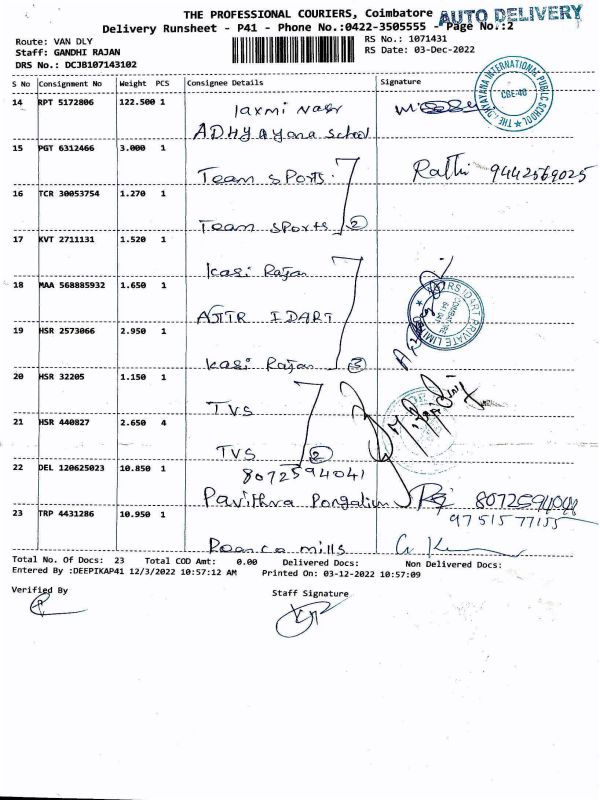 THE PROFESSIONAL COURIERS, Coimbatore
AUTO DELIVERY
Delivery Runsheet - P41 - Phone No.:0422-3505555 - Page No.:2
Route: VAN DLY
RS No.: 1071431
Staff: GANDHI RAJAN
RS Date: 03-Dec-2022
DRS No.: DCJB107143102
S No Consignment No Weight PCS Consignee Details Signature
14 RPT 5172806 122.500 1 laxmi Nagr
ADHyAyana school
CBE-40
15 PGT 6312466 3.000 1 Team sports
Rathi 9442569025
16 TCR 30053754 1.270 1 Team sports 2
17 KVT 2711131 1.520 1 Kasi Rajan
18 MAA 568885932 1.650 1 AJTR IDART
19 HSR 2573066 2.950 1 Kasi Rajan 3
20 HSR 32205 1.150 1 TVS
21 HSR 440827 2.650 4 TVS 2
22 DEL 120625023 10.850 1 8072594041
Pavithra Pongalium
9751577155
23 TRP 4431286 10.950 1 Roanca mills
G. Kumar
Total No. Of Docs: 23 Total COD Amt: 0.00 Delivered Docs: Non Delivered Docs:
Entered By :DEEPIKAP41 12/3/2022 10:57:12 AM Printed On: 03-12-2022 10:57:09
Verified By
Staff Signature